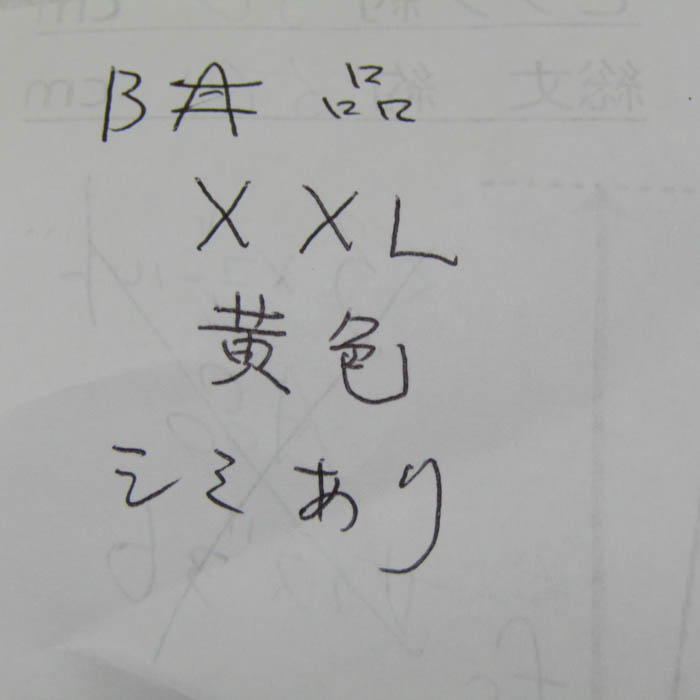 B品
XXL
黄色
シミあり